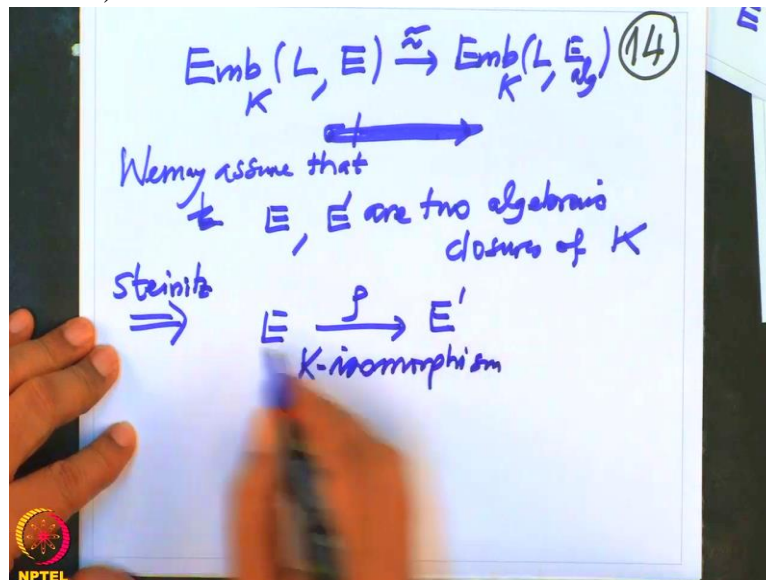 Emb_K (L, E) ⥲ Emb_K (L, E_alg) 14
We may assume that
E, E' are two algebraic
closures of K
Steinitz
⟹ E ⟶^ρ E'
K-isomorphism
E
NPTEL